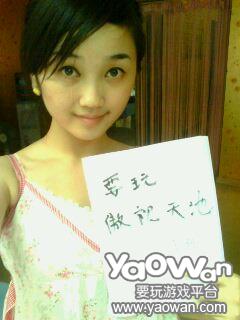 要玩
傲视天地
YaoWan
要玩游戏平台
www.yaowan.com